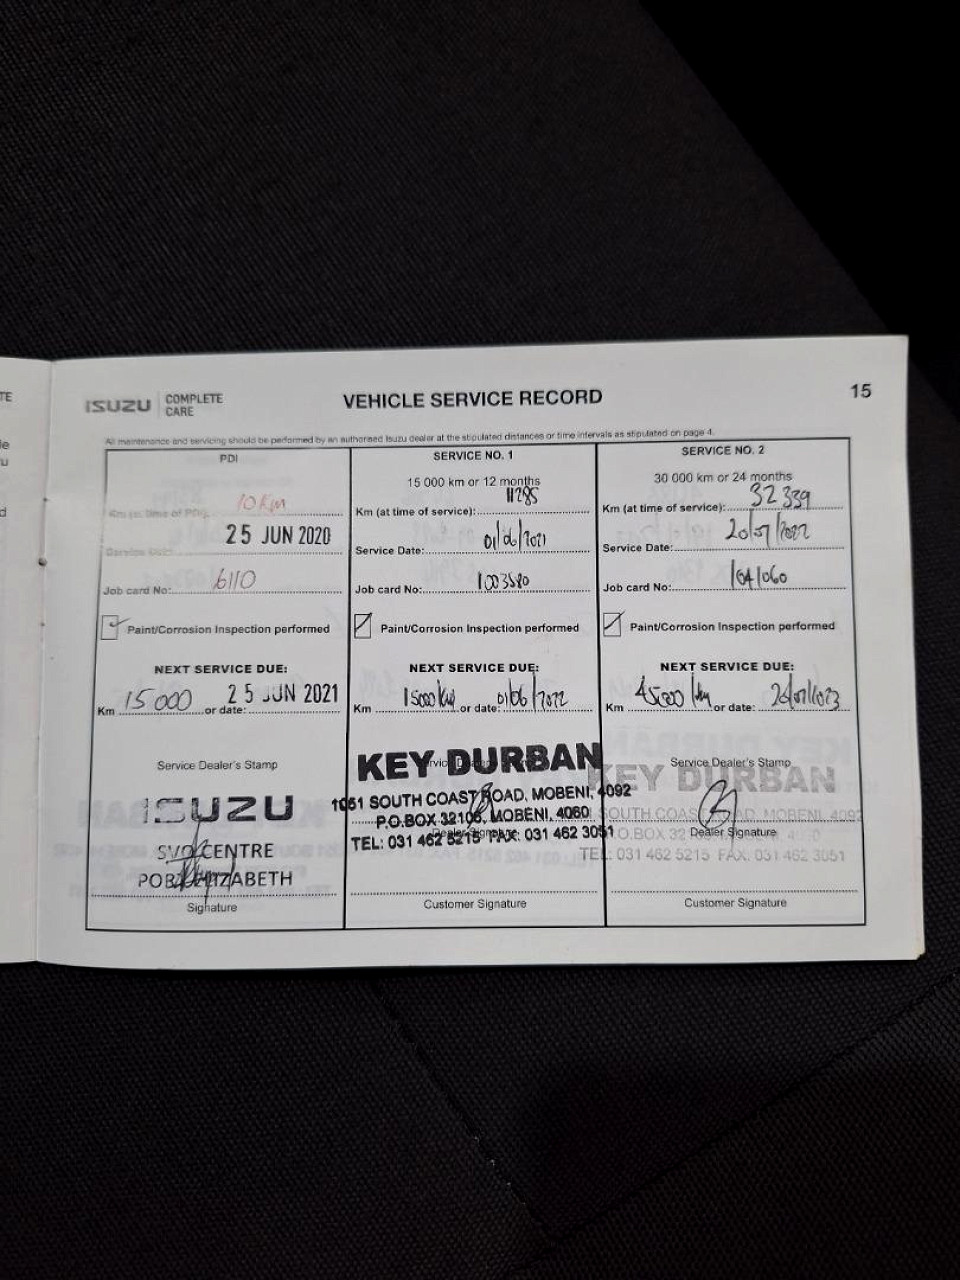 TE
le
u
d
ISUZU COMPLETE CARE
VEHICLE SERVICE RECORD
15
All maintenance and servicing should be performed by an authorised Isuzu dealer at the stipulated distances or time intervals as stipulated on page 4.
PDI
Km (at time of PDI): 10 Km
Service Date: 25 JUN 2020
Job card No: 6110
Paint/Corrosion Inspection performed
NEXT SERVICE DUE:
Km 15 000 or date: 25 JUN 2021
Service Dealer's Stamp
ISUZU
CENTRE
Signature
SERVICE NO. 1
15 000 km or 12 months
Km (at time of service): 11285
Service Date: 01/06/2021
Job card No: 1003580
Paint/Corrosion Inspection performed
NEXT SERVICE DUE:
Km 15000 km or date: 01/06/2022
KEY DURBAN
1051 SOUTH COAST ROAD, MOBENI, 4092
P.O.BOX 32106, MOBENI, 4060
TEL: 031 462 5215 FAX: 031 462 3051
Dealer Signature
Customer Signature
SERVICE NO. 2
30 000 km or 24 months
Km (at time of service): 32 339
Service Date: 20/07/2022
Job card No:
Paint/Corrosion Inspection performed
NEXT SERVICE DUE:
Km 45000 km or date:
Service Dealer's Stamp
KEY DURBAN
SOUTH COAST ROAD, MOBENI, 4092
Dealer Signature
TEL: 031 462 5215 FAX: 031 462 3051
Customer Signature